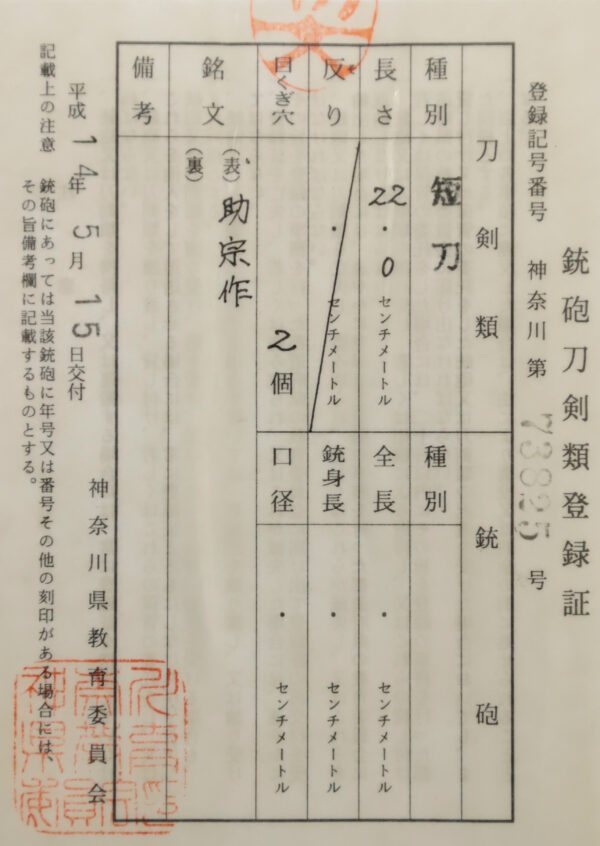 銃砲刀剣類登録証
登録記号番号 神奈川第 73825 号
刀剣類
種別 短刀
長さ 22.0 センチメートル
反り ・ センチメートル
目くぎ穴 2 個
銘文 (表) 助宗作
(裏)
備考
銃砲
種別
全長 ・ センチメートル
銃身長 ・ センチメートル
口径 ・ センチメートル
平成 14年 5月 15日交付
神奈川県教育委員会
記載上の注意 銃砲にあっては当該銃砲に年号又は番号その他の刻印がある場合には、
その旨備考欄に記載するものとする。